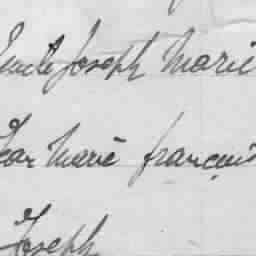 Emile Joseph Marie
Jean Marie françois
Joseph